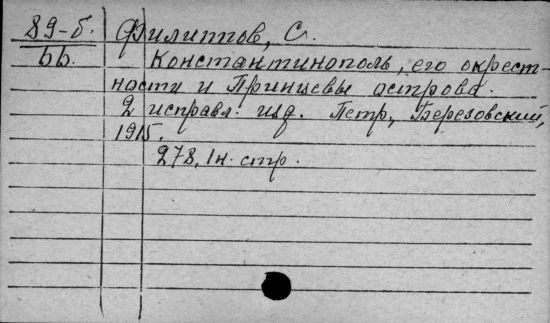 89-б. Филиппов, С.
бб. Константинополь, его окрест-
ности и Принцевы острова.
2 исправл. изд. Петр, Березовский,
1915.
278, 1н. стр.